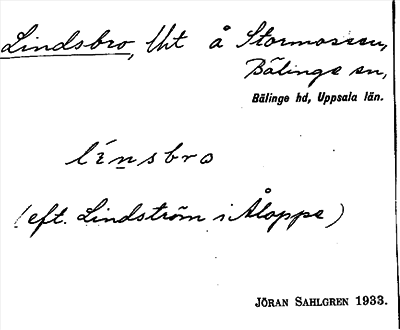 Lindsbro, lht å Stormossen,
Bälinge sn,
Bälinge hd, Uppsala län.
línsbro
(eft. Lindström i Åloppe)
JÖRAN SAHLGREN 1933.